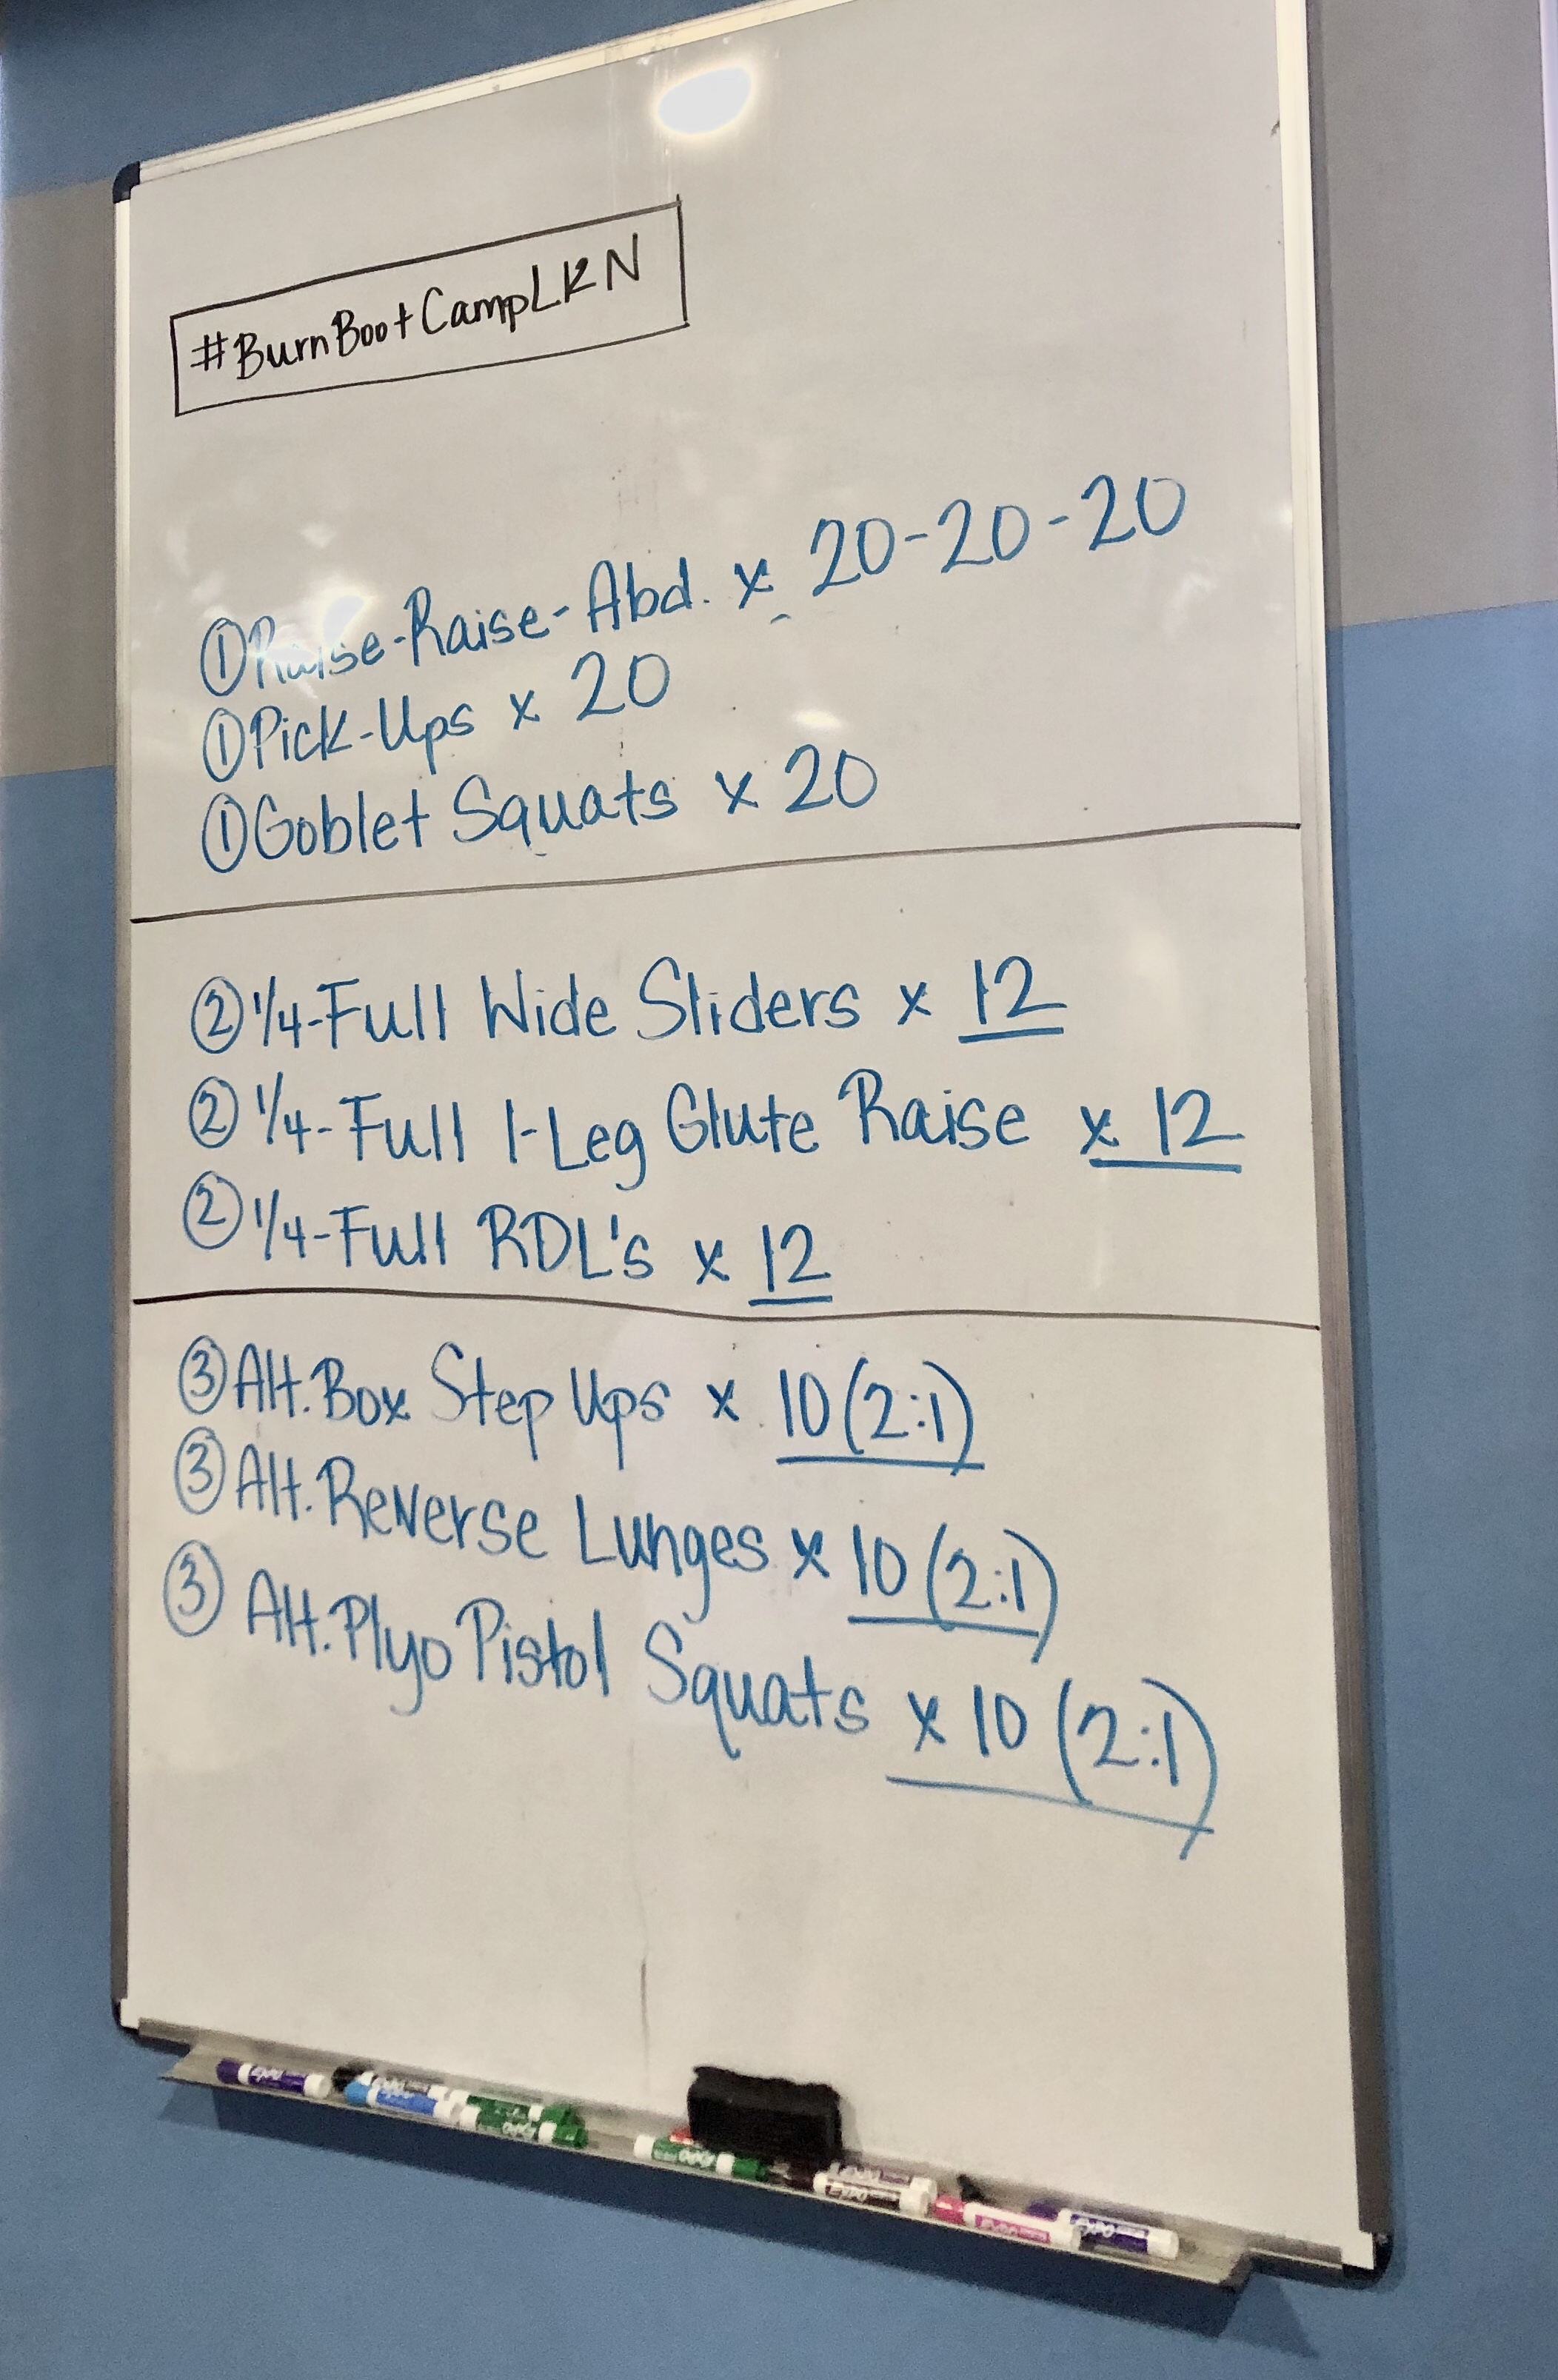 #BurnBootCampLKN
①Raise-Raise-Abd. x 20-20-20
①Pick-Ups x 20
①Goblet Squats x 20
②1/4-Full Wide Sliders x 12
②1/4-Full 1-Leg Glute Raise x 12
②1/4-Full RDL's x 12
③Alt.Box Step Ups x 10(2:1)
③Alt.Reverse Lunges x 10(2:1)
③Alt.Plyo Pistol Squats x 10(2:1)
EXPO
EXPO
EXPO